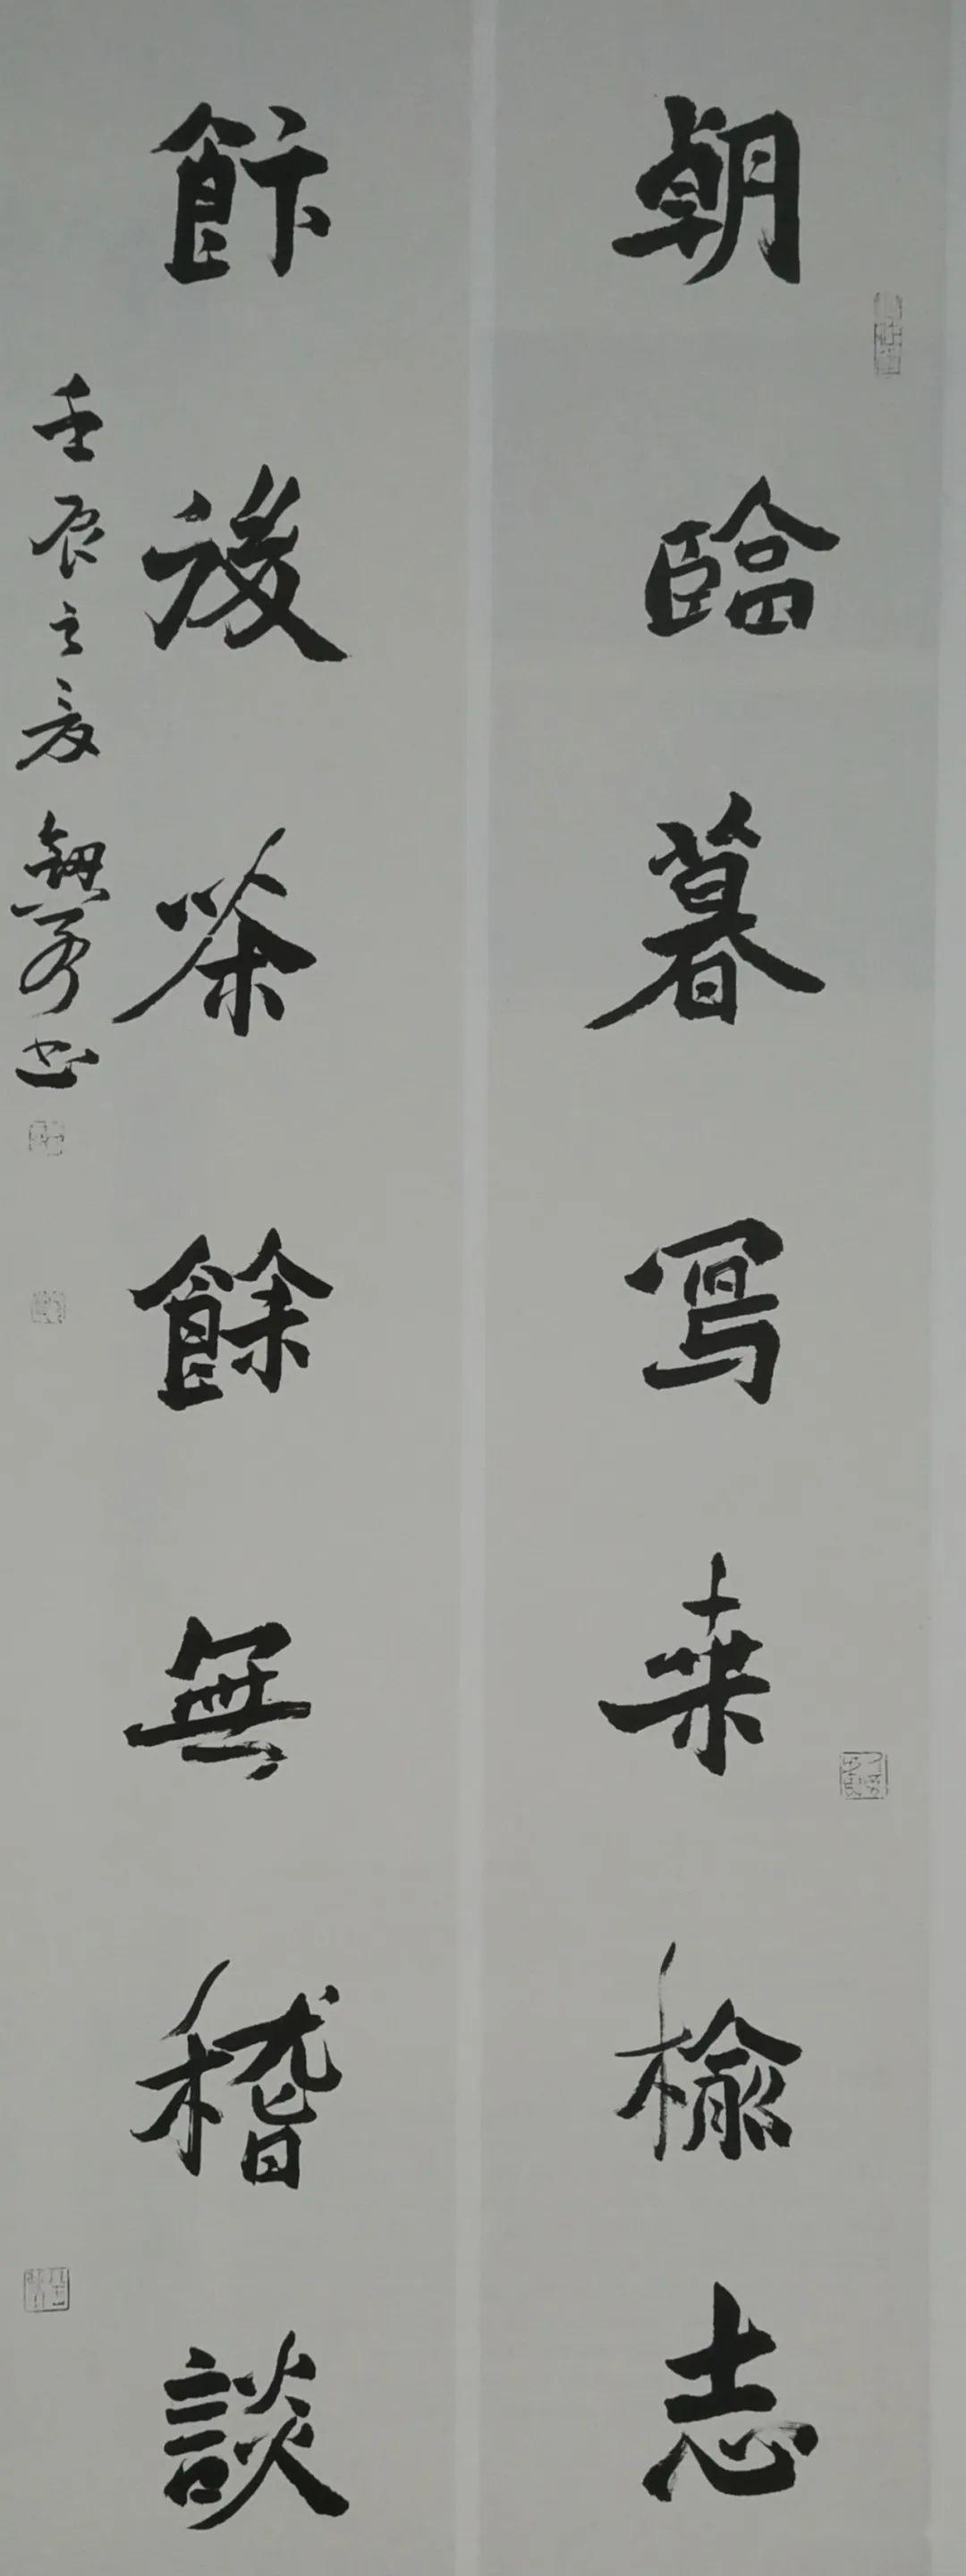 朝臨暮寫桒榆志
飰後茶餘無稽談
壬辰之夏 书